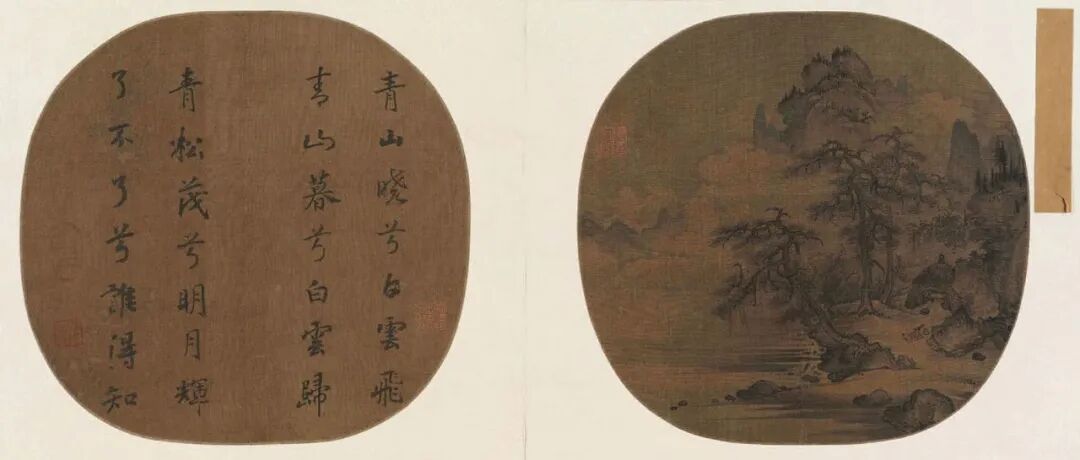 青山晓兮白雲飛
青山暮兮白雲歸
青松茂兮明月輝
了不了兮誰得知